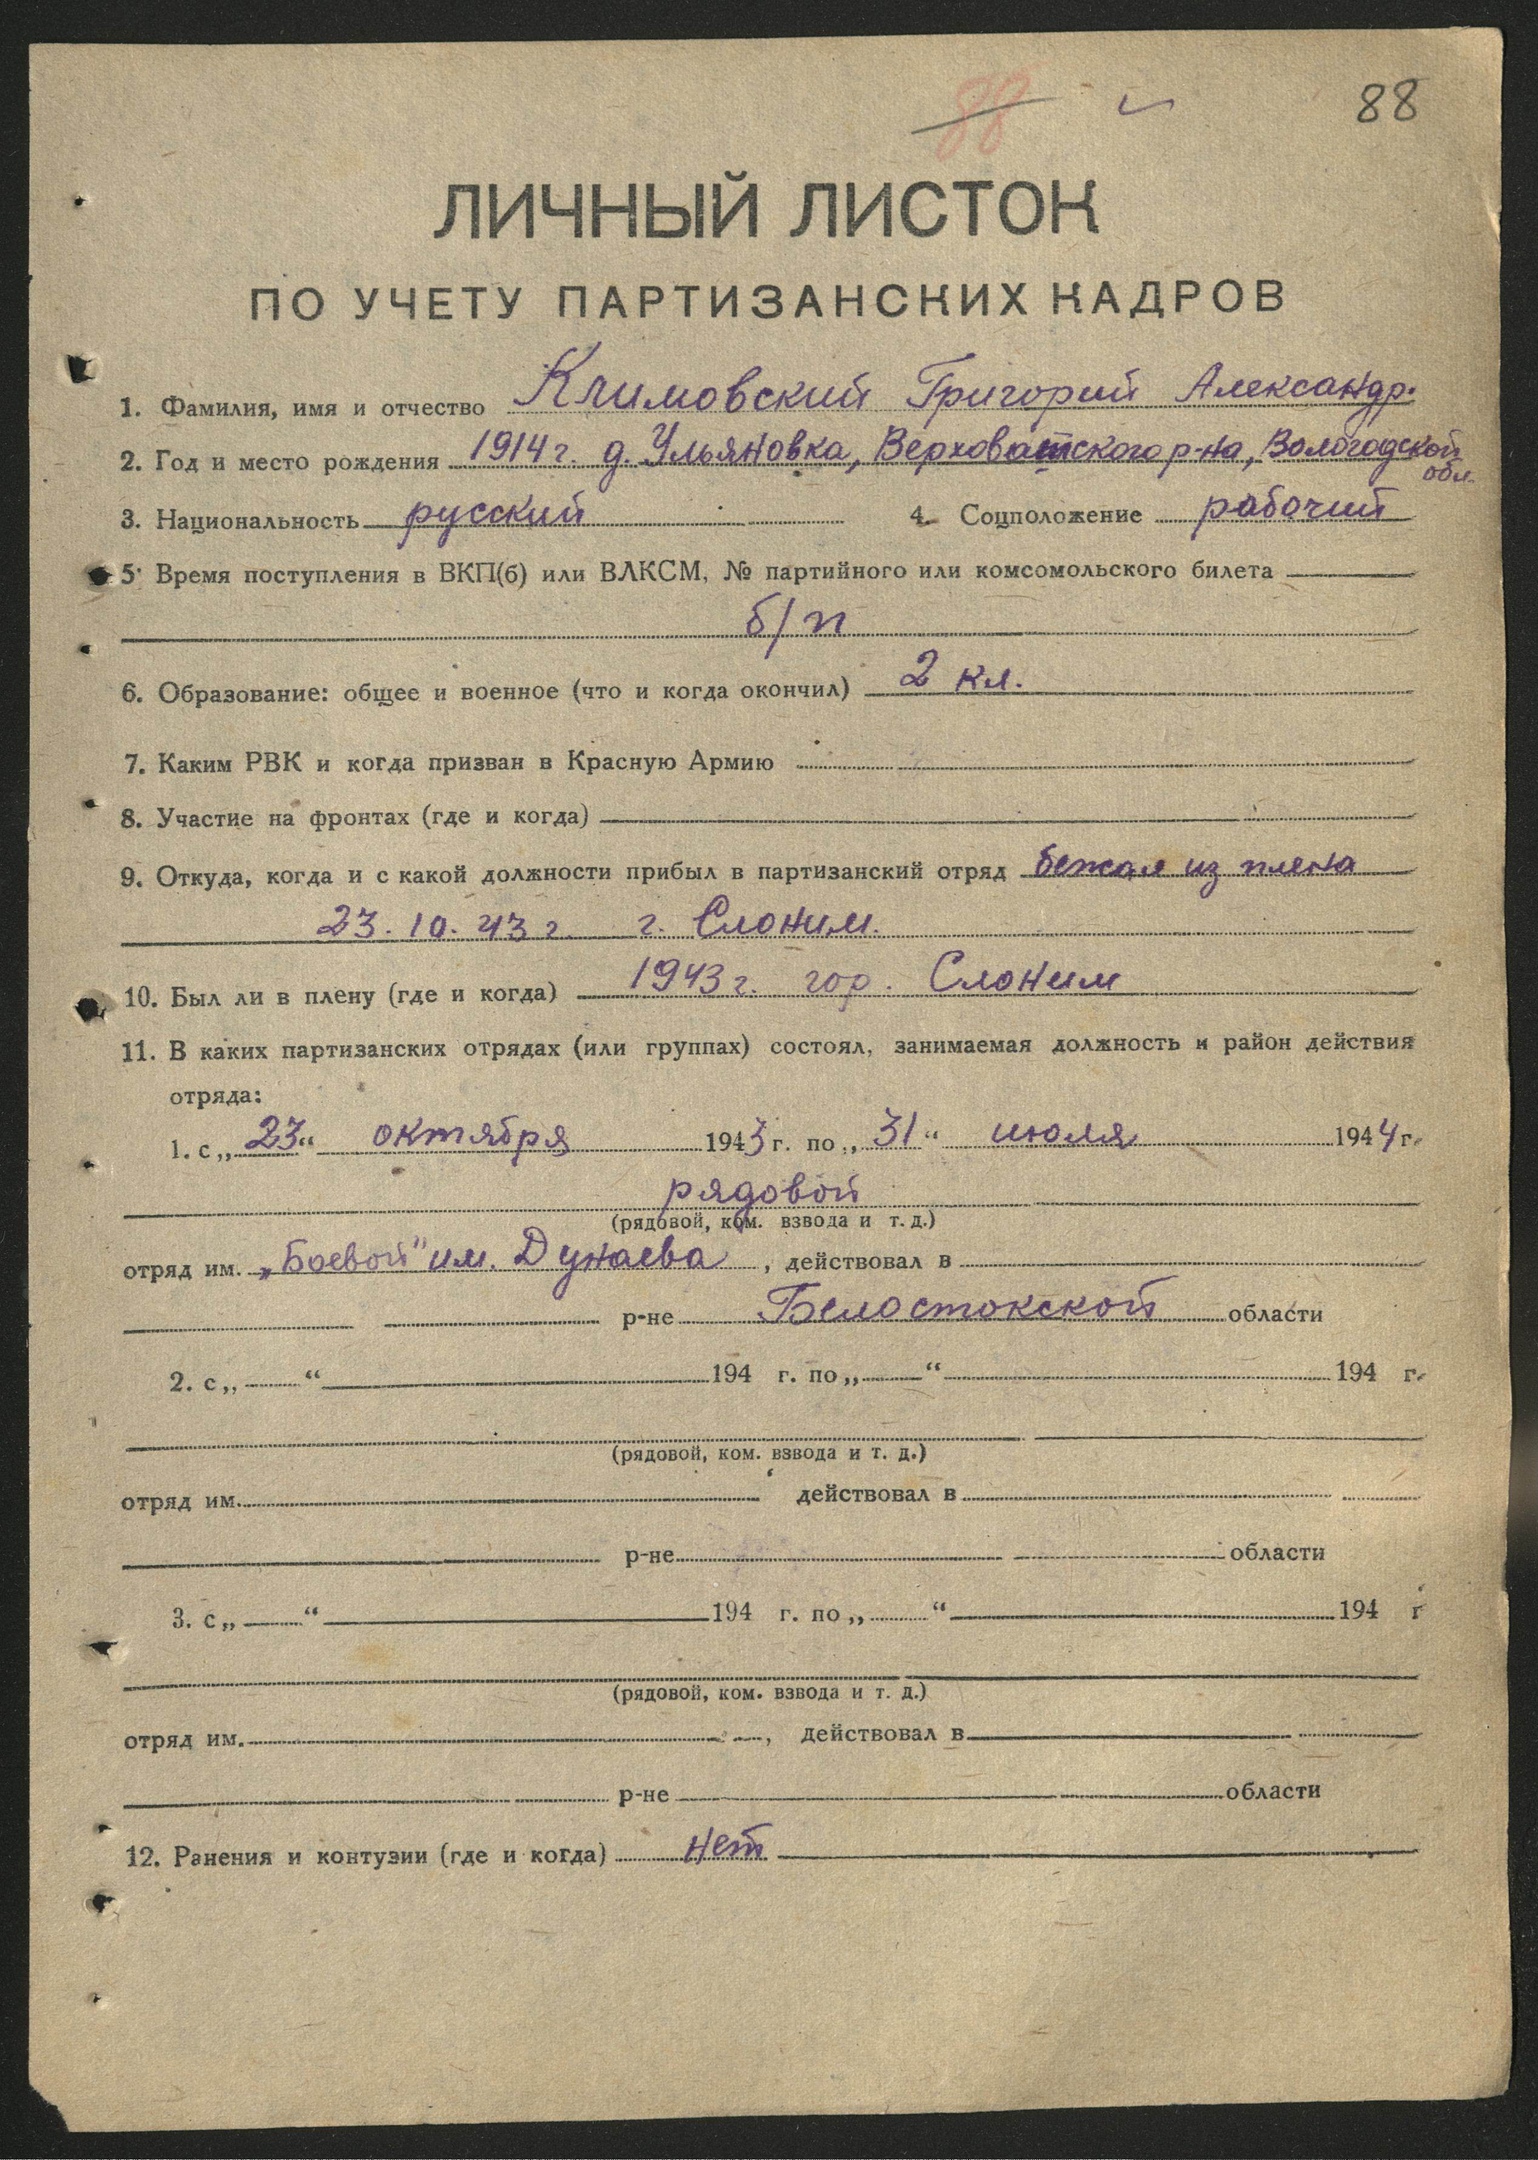 88 88
ЛИЧНЫЙ ЛИСТОК
ПО УЧЕТУ ПАРТИЗАНСКИХ КАДРОВ
1. Фамилия, имя и отчество Климовский Григорий Александр.
2. Год и место рождения 1914 г. д. Ульяновка, Верховатского р-на, Вологодской
обл.
3. Национальность русский 4. Соцположение рабочий
5. Время поступления в ВКП(б) или ВЛКСМ, № партийного или комсомольского билета
б/п
6. Образование: общее и военное (что и когда окончил) 2 кл.
7. Каким РВК и когда призван в Красную Армию
8. Участие на фронтах (где и когда)
9. Откуда, когда и с какой должности прибыл в партизанский отряд бежал из плена
23. 10. 43 г. г. Слоним.
10. Был ли в плену (где и когда) 1943 г. гор. Слоним
11. В каких партизанских отрядах (или группах) состоял, занимаемая должность и район действия
отряда:
1. с „23“ октября 1943 г. по „31“ июля 1944 г.
рядовой
(рядовой, ком. взвода и т. д.)
отряд им. „Боевой" им. Дунаева, действовал в
р-не Белостокской области
2. с „ “ 194 г. по „ “ 194 г.
(рядовой, ком. взвода и т. д.)
отряд им. действовал в
р-не области
3. с „ “ 194 г. по „ “ 194 г
(рядовой, ком. взвода и т. д.)
отряд им. , действовал в
р-не области
12. Ранения и контузии (где и когда) нет